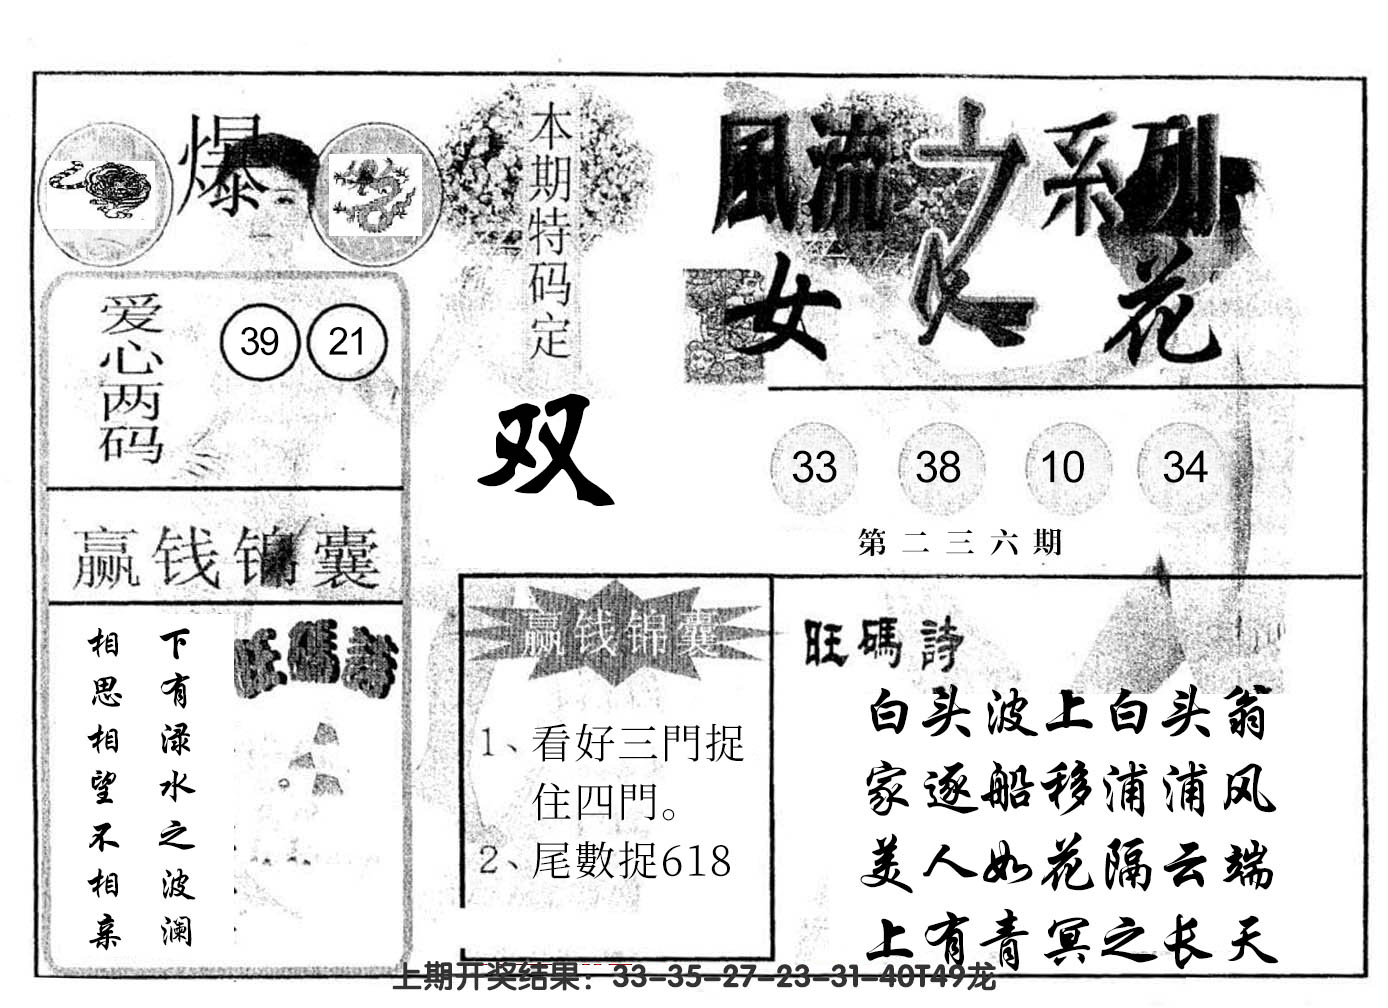 爆
本期特码定
双
風流之系列
女人花
爱心两码
39 21
33 38 10 34
第二三六期
赢钱锦囊
旺碼詩
下有渌水之波澜
相思相望不相亲
赢钱锦囊
1、看好三門捉
住四門。
2、尾數捉618
旺碼詩
白头波上白头翁
家逐船移浦浦风
美人如花隔云端
上有青冥之长天
上期开奖结果：33-35-27-23-31-40T49龙